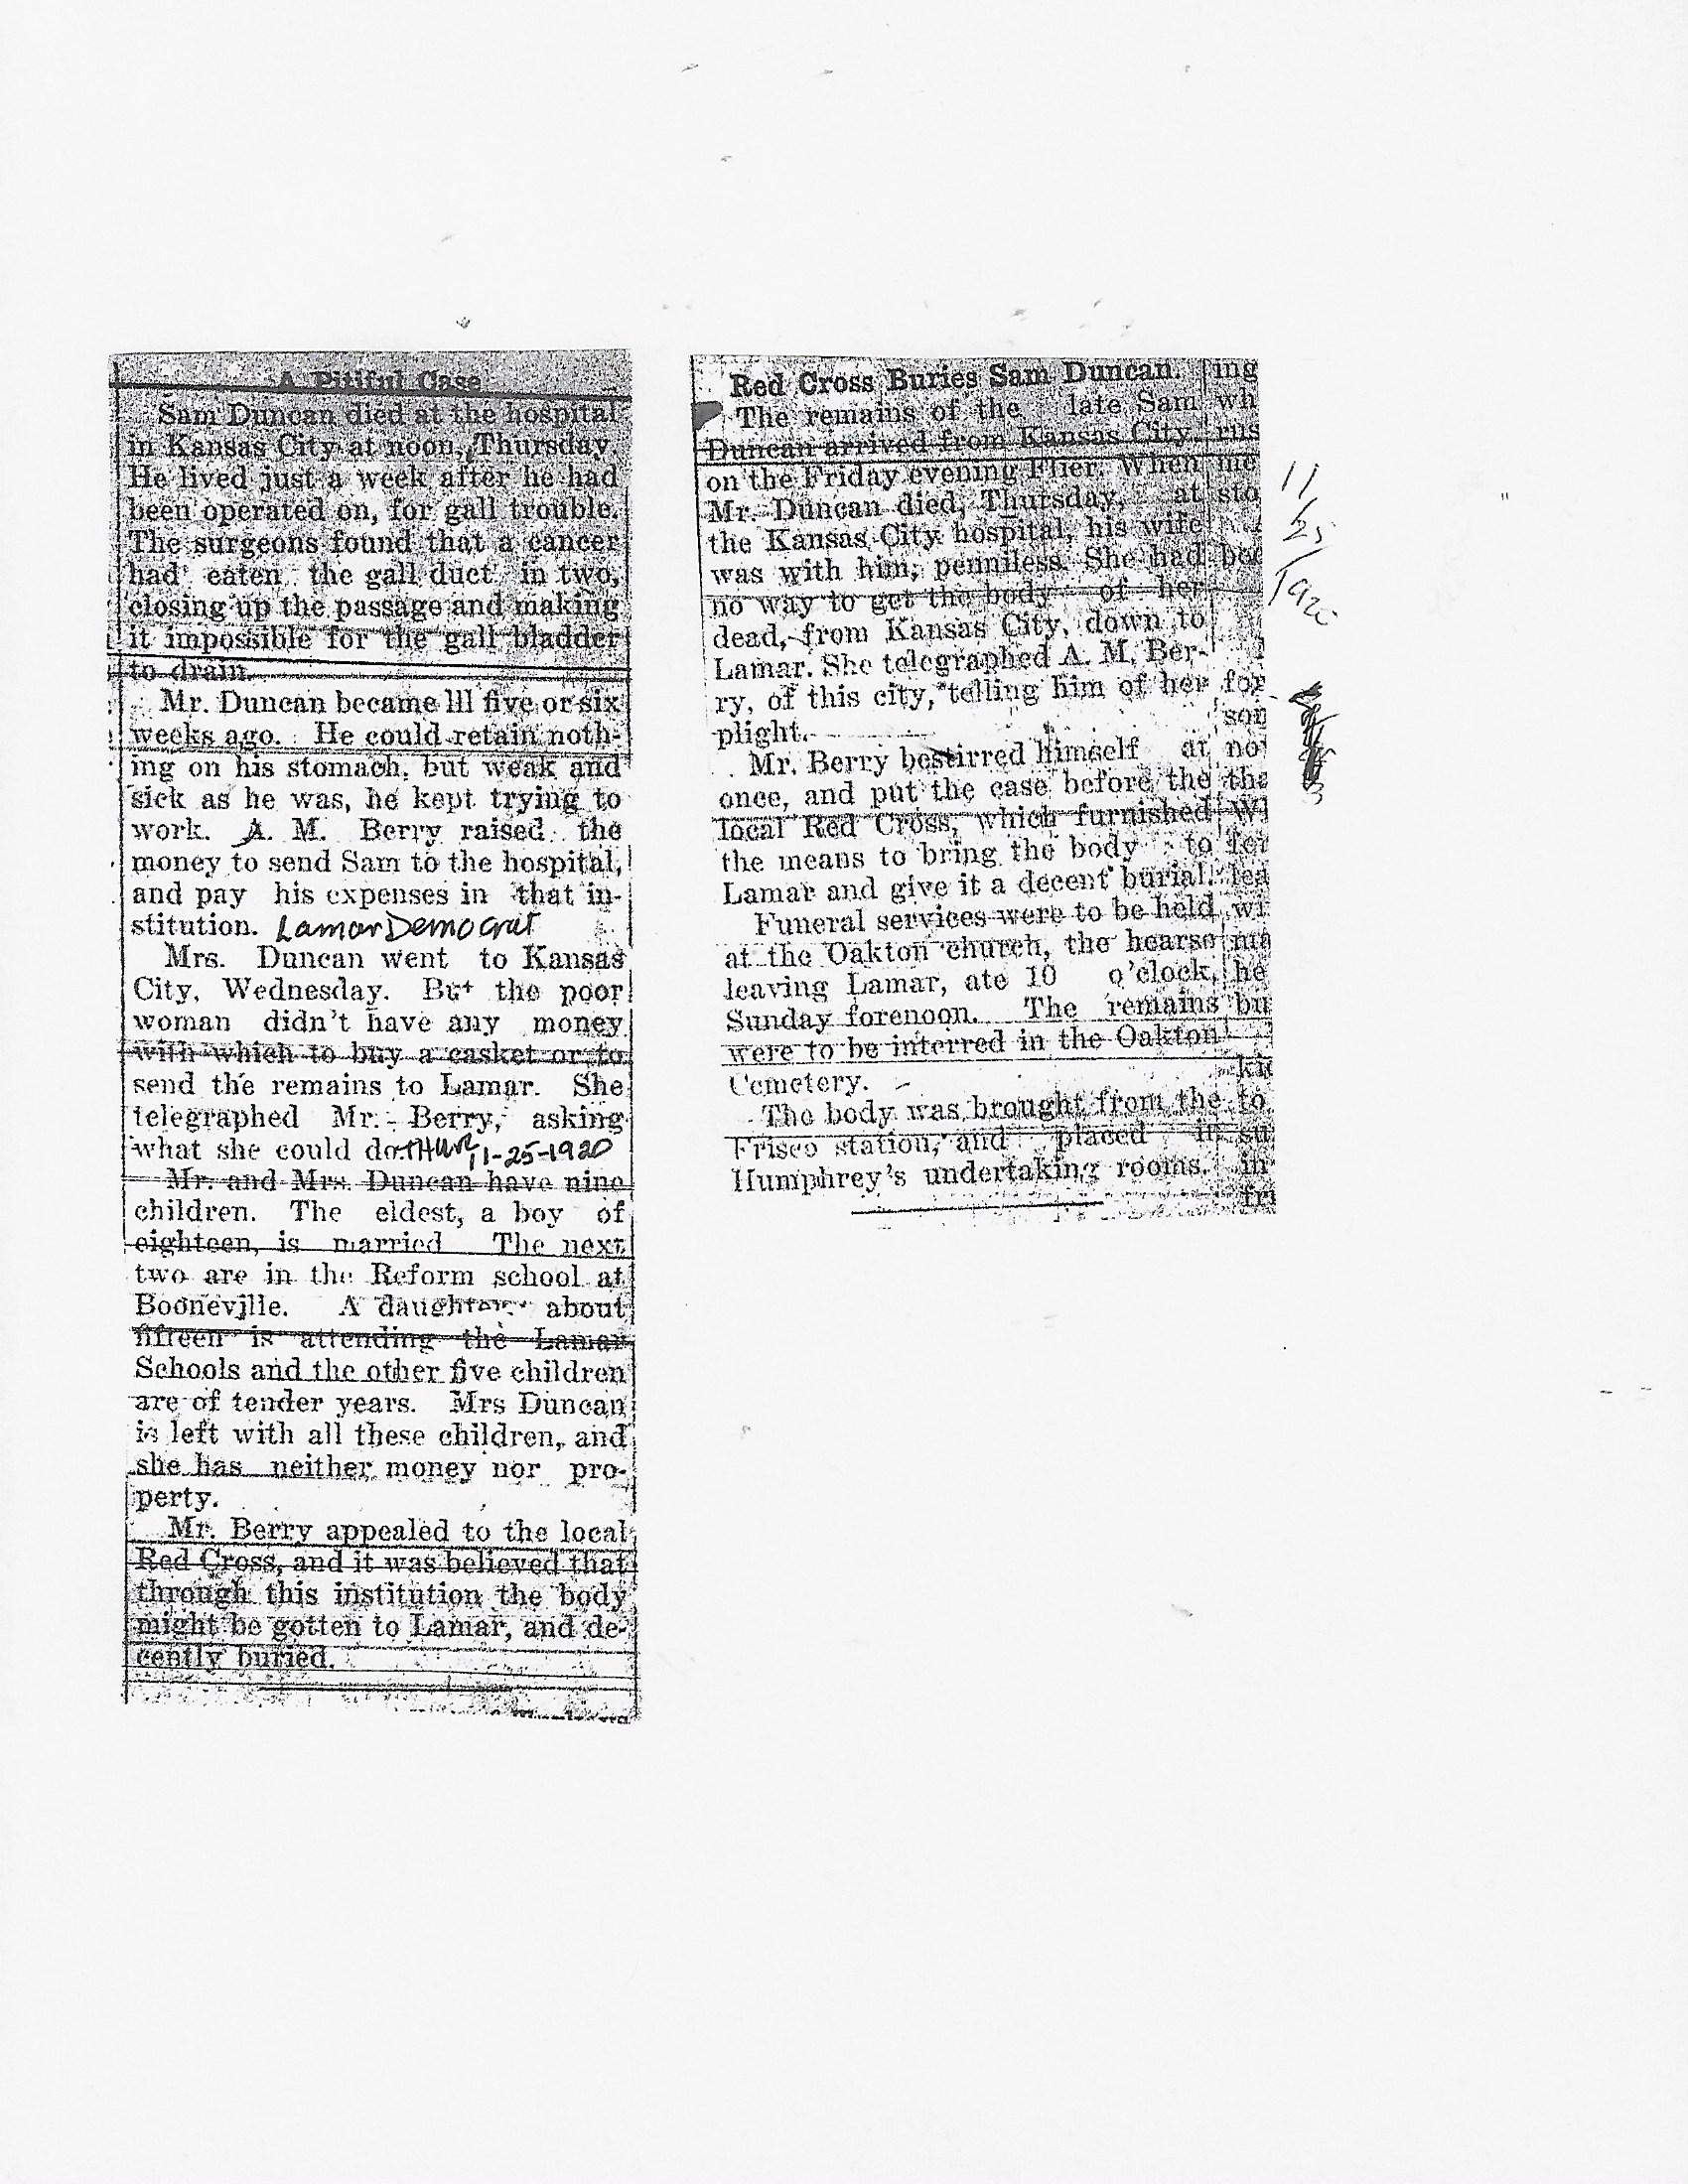 A Pitiful Case
Sam Duncan died at the hospital
in Kansas City at noon, Thursday.
He lived just a week after he had
been operated on, for gall trouble.
The surgeons found that a cancer
had eaten the gall duct in two,
closing up the passage and making
it impossible for the gall bladder
to drain.
Mr. Duncan became ill five or six
weeks ago. He could retain noth-
ing on his stomach, but weak and
sick as he was, he kept trying to
work. A. M. Berry raised the
money to send Sam to the hospital,
and pay his expenses in that in-
stitution. Lamar Democrat
Mrs. Duncan went to Kansas
City, Wednesday. But the poor
woman didn't have any money
with which to buy a casket or to
send the remains to Lamar. She
telegraphed Mr. Berry, asking
what she could do. THUR 11-25-1920
Mr. and Mrs. Duncan have nine
children. The eldest, a boy of
eighteen, is married The next
two are in the Reform school at
Booneville. A daughter about
fifteen is attending the Lamar
Schools and the other five children
are of tender years. Mrs Duncan
is left with all these children, and
she has neither money nor pro-
perty.
Mr. Berry appealed to the local
Red Cross, and it was believed that
through this institution the body
might be gotten to Lamar, and de-
cently buried.
Red Cross Buries Sam Duncan.
The remains of the late Sam
Duncan arrived from Kansas City,
on the Friday evening Flier. When
Mr. Duncan died, Thursday, at
the Kansas City hospital, his wife
was with him, penniless. She had
no way to get the body of her
dead, from Kansas City, down to
Lamar. She telegraphed A. M. Ber-
ry, of this city, telling him of her
plight.
Mr. Berry bestirred himself at
once, and put the case before the
local Red Cross, which furnished
the means to bring the body to
Lamar and give it a decent burial.
Funeral services were to be held
at the Oakton church, the hearse
leaving Lamar, ate 10 o'clock,
Sunday forenoon. The remains
were to be interred in the Oakton
Cemetery.
The body was brought from the
Frisco station, and placed in
Humphrey's undertaking rooms.
ing
wh
rus
me
sto
for
son
no
tha
Wh
for
lea
wi
ma
he
bu
kin
to
su
in
fri
11
/25
/1920